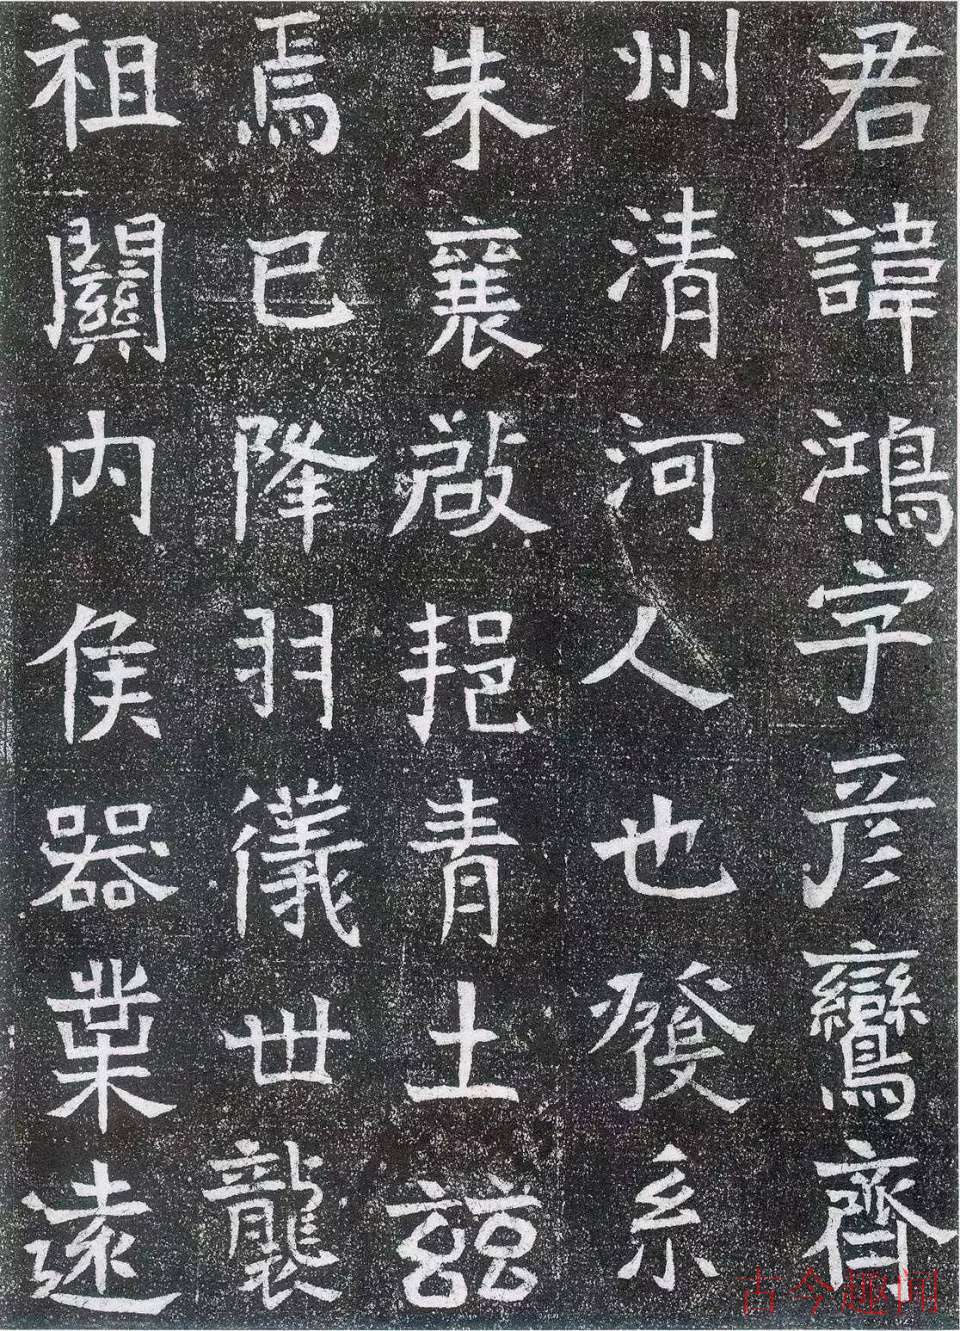 君諱鴻字彦鸞齊
州清河人也發系
朱襄啟挹青土茲
焉已降羽儀世襲
祖關内侯器業遠
古今趣闻